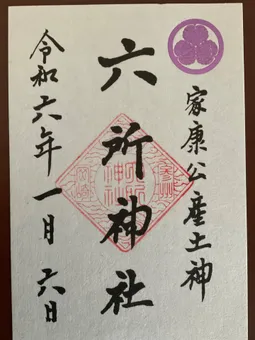 家康公産土神
六所神社
令和六年一月六日